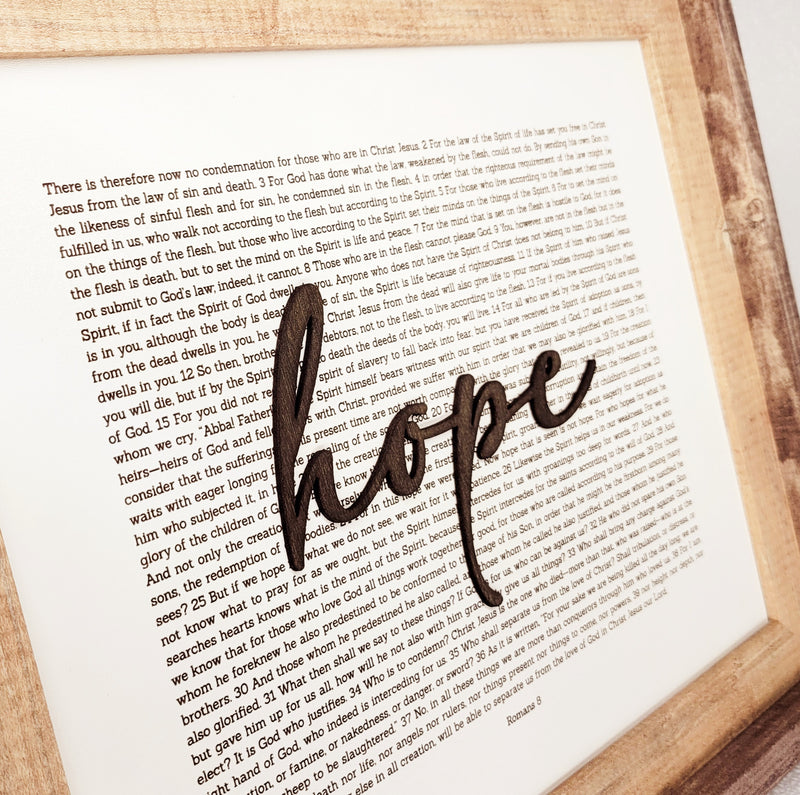 There is therefore now no condemnation for those who are in Christ Jesus. 2 For the law of the Spirit of life has set you free in Christ
Jesus from the law of sin and death. 3 For God has done what the law, weakened by the flesh, could not do. By sending his own Son in
the likeness of sinful flesh and for sin, he condemned sin in the flesh, 4 in order that the righteous requirement of the law might be
fulfilled in us, who walk not according to the flesh but according to the Spirit. 5 For those who live according to the flesh set their minds
on the things of the flesh, but those who live according to the Spirit set their minds on the things of the Spirit. 6 For to set the mind on
the flesh is death, but to set the mind on the Spirit is life and peace. 7 For the mind that is set on the flesh is hostile to God, for it does
not submit to God's law; indeed, it cannot. 8 Those who are in the flesh cannot please God. 9 You, however, are not in the flesh but in the
Spirit, if in fact the Spirit of God you. Anyone who does not have the Spirit of Christ does not belong to him. 10 But if Christ
is in you, although the body is dead of sin, the Spirit is life because of righteousness. 11 If the Spirit of him who raised Jesus
from the dead dwells in you, he Christ Jesus from the dead will also give life to your mortal bodies through his Spirit who
dwells in you. 12 So then, debtors, not to the flesh, to live according to the flesh. 13 For if you live according to the flesh
you will die, but if by the death the deeds of the body, you will live. 14 For all who are led by the Spirit of God are sons
of God. 15 For you did not spirit of slavery to fall back into fear, but you have received the Spirit of adoption as sons, by
whom we cry, "Abba! Spirit himself bears witness with our spirit that we are children of God, 17 and if children, then
heirs—heirs of God and with Christ, provided we suffer with him in order that we may also be glorified with him. 18 For I
consider that the sufferings present time are not worth with the glory that revealed to us. 19 For the creation
waits with eager longing of the
him who subjected it, in the freedom of the
glory of the children of
And not only the creation,
sons, the redemption of bodies. in this hope we were Now hope that is seen is not hope. For who hopes for what he
sees? 25 But if we hope what we do not see, we wait for it patience. 26 Likewise the Spirit helps us in our weakness. For we do
not know what to pray for as we ought, but the Spirit intercedes for us with groanings too deep for words. 27 And he who
searches hearts knows what is the mind of the Spirit, because Spirit intercedes for the saints according to the will of God. 28 And
we know that for those who love God all things work together good, for those who are called according to his purpose. 29 For those
whom he foreknew he also predestined to be conformed to the image of his Son, in order that he might be the firstborn among many
brothers. 30 And those whom he predestined he also called, whom he called he also justified, and those whom he justified he
also glorified. 31 What then shall we say to these things? If God for us, who can be against us? 32 He who did not spare his own Son
but gave him up for us all, how will he not also with him give us all things? 33 Who shall bring any charge against God's
elect? It is God who justifies. 34 Who is to condemn? Christ Jesus is the one who died—more than that, who was raised—who is at the
right hand of God, who indeed is interceding for us. 35 Who shall separate us from the love of Christ? Shall tribulation, or distress, or
or famine, or nakedness, or danger, or sword? 36 As it is written, "For your sake we are being killed all the day long; we are
sheep to be slaughtered." 37 No, in all these things we are more than conquerors through him who loved us. 38 For I am
death nor life, nor angels nor rulers, nor things present nor things to come, nor powers, 39 nor height nor depth, nor
else in all creation, will be able to separate us from the love of God in Christ Jesus our Lord.
hope
Romans 8